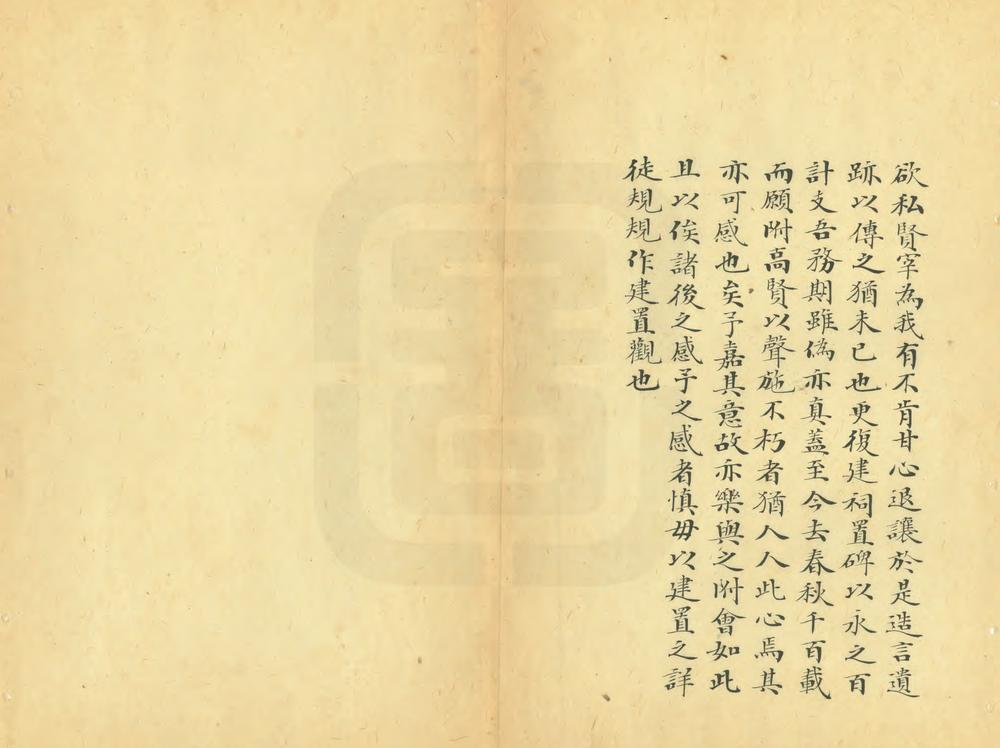 欲私賢宰為我有不肯甘心退讓於是造言遺
跡以傳之猶未已也更復建祠置碑以永之百
計支吾務期雖偽亦真蓋至今去春秋千百載
而願附高賢以聲施不朽者猶人人此心焉其
亦可感也矣予嘉其意故亦樂與之附會如此
且以俟諸後之感予之感者慎毋以建置之詳
徒規規作建置觀也